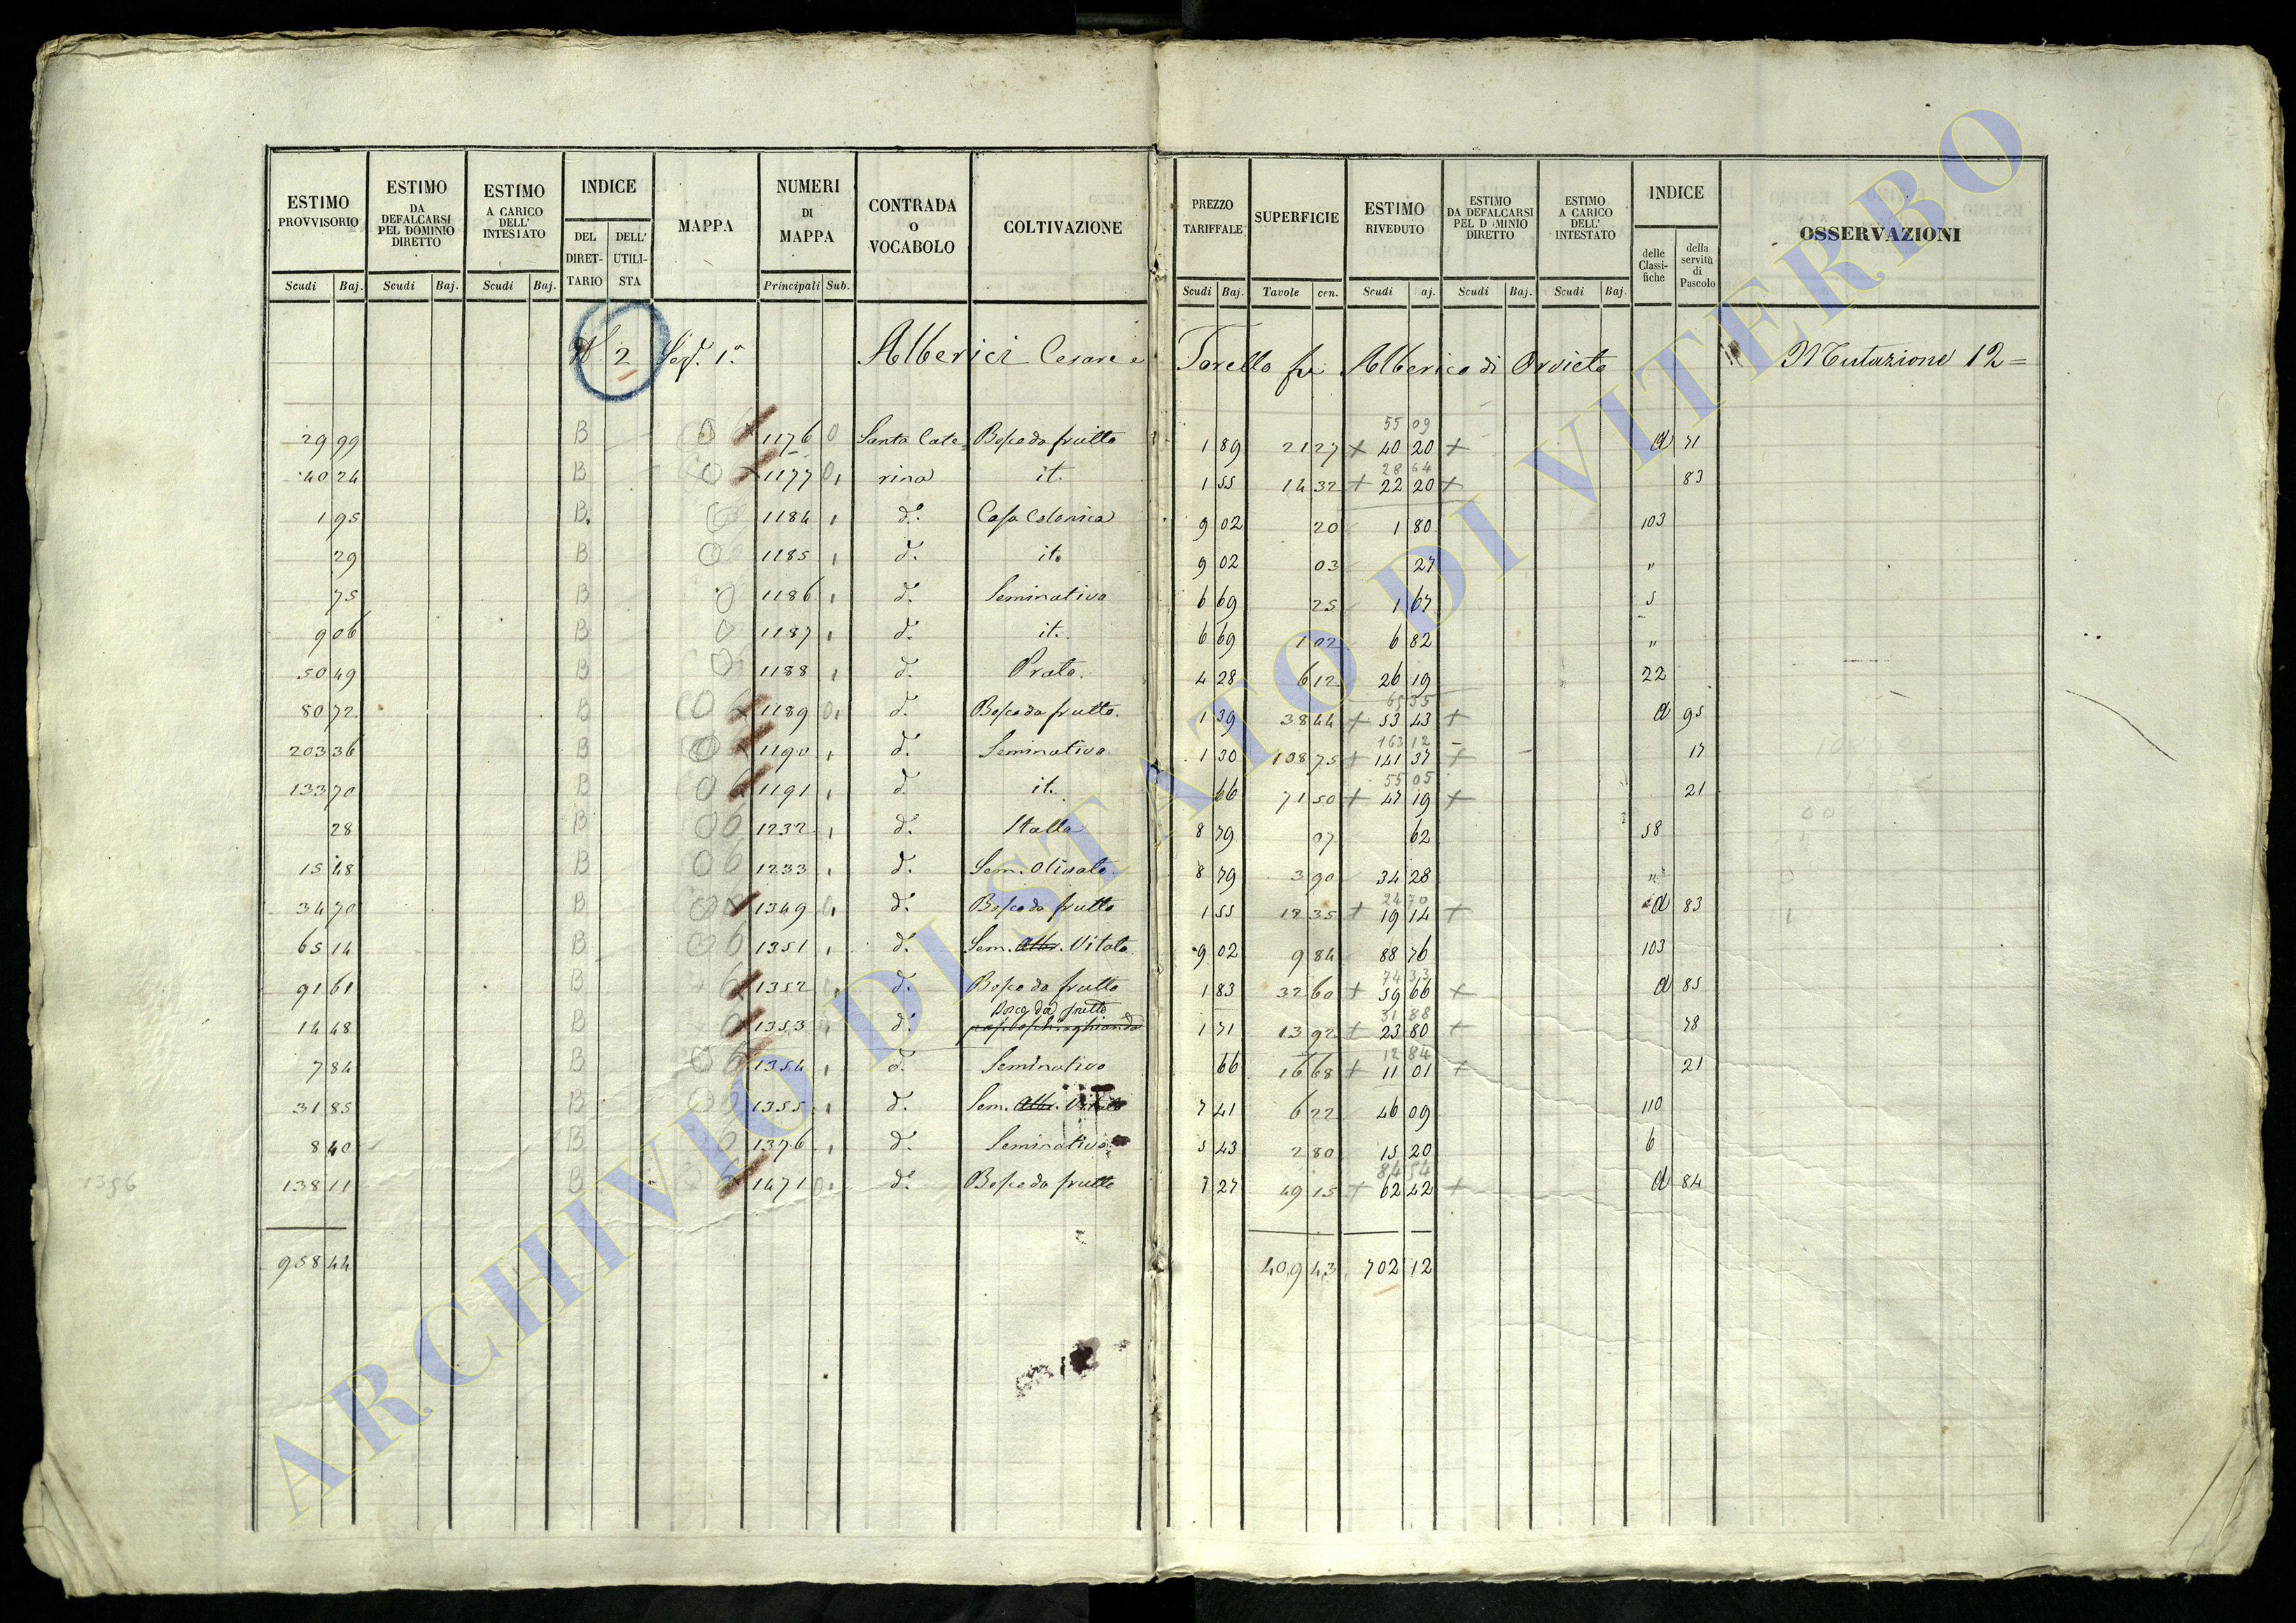 ESTIMO PROVVISORIO | ESTIMO DA DEFALCARSI PEL DOMINIO DIRETTO | ESTIMO A CARICO DELL' INTESTATO | INDICE | MAPPA | NUMERI DI MAPPA | CONTRADA o VOCABOLO | COLTIVAZIONE | PREZZO TARIFFALE | SUPERFICIE | ESTIMO RIVEDUTO | ESTIMO DA DEFALCARSI PEL DOMINIO DIRETTO | ESTIMO A CARICO DELL' INTESTATO | INDICE | OSSERVAZIONI
DEL DIRETTARIO | DELL' UTILISTA | delle Classifiche | della servitù di Pascolo
Scudi | Baj. | Scudi | Baj. | Scudi | Baj. | Principali | Sub. | Scudi | Baj. | Tavole | cen. | Scudi | aj. | Scudi | Baj. | Scudi | Baj.
2 Sez. 1.a Alberici Cesare e Torello fu Alberico di Orvieto Mutazione 12=
55 09
29 99 B 0 6 1176 0 Santa Cate= Bosco da frutto 1 89 21 27 + 40 20 + a 71
28 64
40 24 B 0 1177 0 1 rina it. 1 55 14 32 + 22 20 + 83
1 95 B. 1184 1 d.o Casa Colonica 9 02 20 1 80 103
29 B 0 1185 1 d.o it. 9 02 03 27 "
75 B 0 1186 1 d.o Seminativo 6 69 25 1 67 5
9 06 B 0 1187 1 d.o it. 6 69 1 02 6 82 "
50 49 B 0 1188 1 d.o Prato. 4 28 6 12 26 19 22
65 55
80 72 B 0 6 1189 0 1 d.o Bosco da frutto. 1 39 38 44 + 53 43 + a 95
163 12
203 36 B 0 1190 1 d.o Seminativo 1 30 108 75 + 141 37 + 17
55 05
133 70 B 0 6 1191 1 d.o it. 66 71 50 + 47 19 + 21
28 B 0 6 1232 1 d.o Stalla 8 79 07 62 58
15 48 B 0 6 1233 1 d.o Sem. Olivato. 8 79 3 90 34 28 "
24 70
34 70 B 0 6 1349 0 1 d.o Bosco da frutto 1 55 12 35 + 19 14 + a 83
65 14 B 0 6 1351 1 d.o Sem. Alb. Vitato 9 02 9 84 88 76 103
74 33
91 61 B 6 1352 d.o Bosco da frutto 1 83 32 60 + 59 66 + a 85
Bosco da frutto 31 88
14 48 B 0 1353 d.o 1 71 13 92 + 23 80 + 78
12 84
7 84 B 0 6 1354 1 d.o Seminativo 66 16 68 + 11 01 + 21
31 85 B 1355 1 d.o Sem. Alb. Vitato 7 41 6 22 46 09 110
8 40 B 6 1376 1 d.o Seminativo 5 43 2 80 15 20 6
84 54
1356 138 11 B 6 1471 0 1 d.o Bosco da frutto 1 27 49 15 + 62 42 + a 84
958 44 409 43 702 12
ARCHIVIO DI STATO DI VITERBO